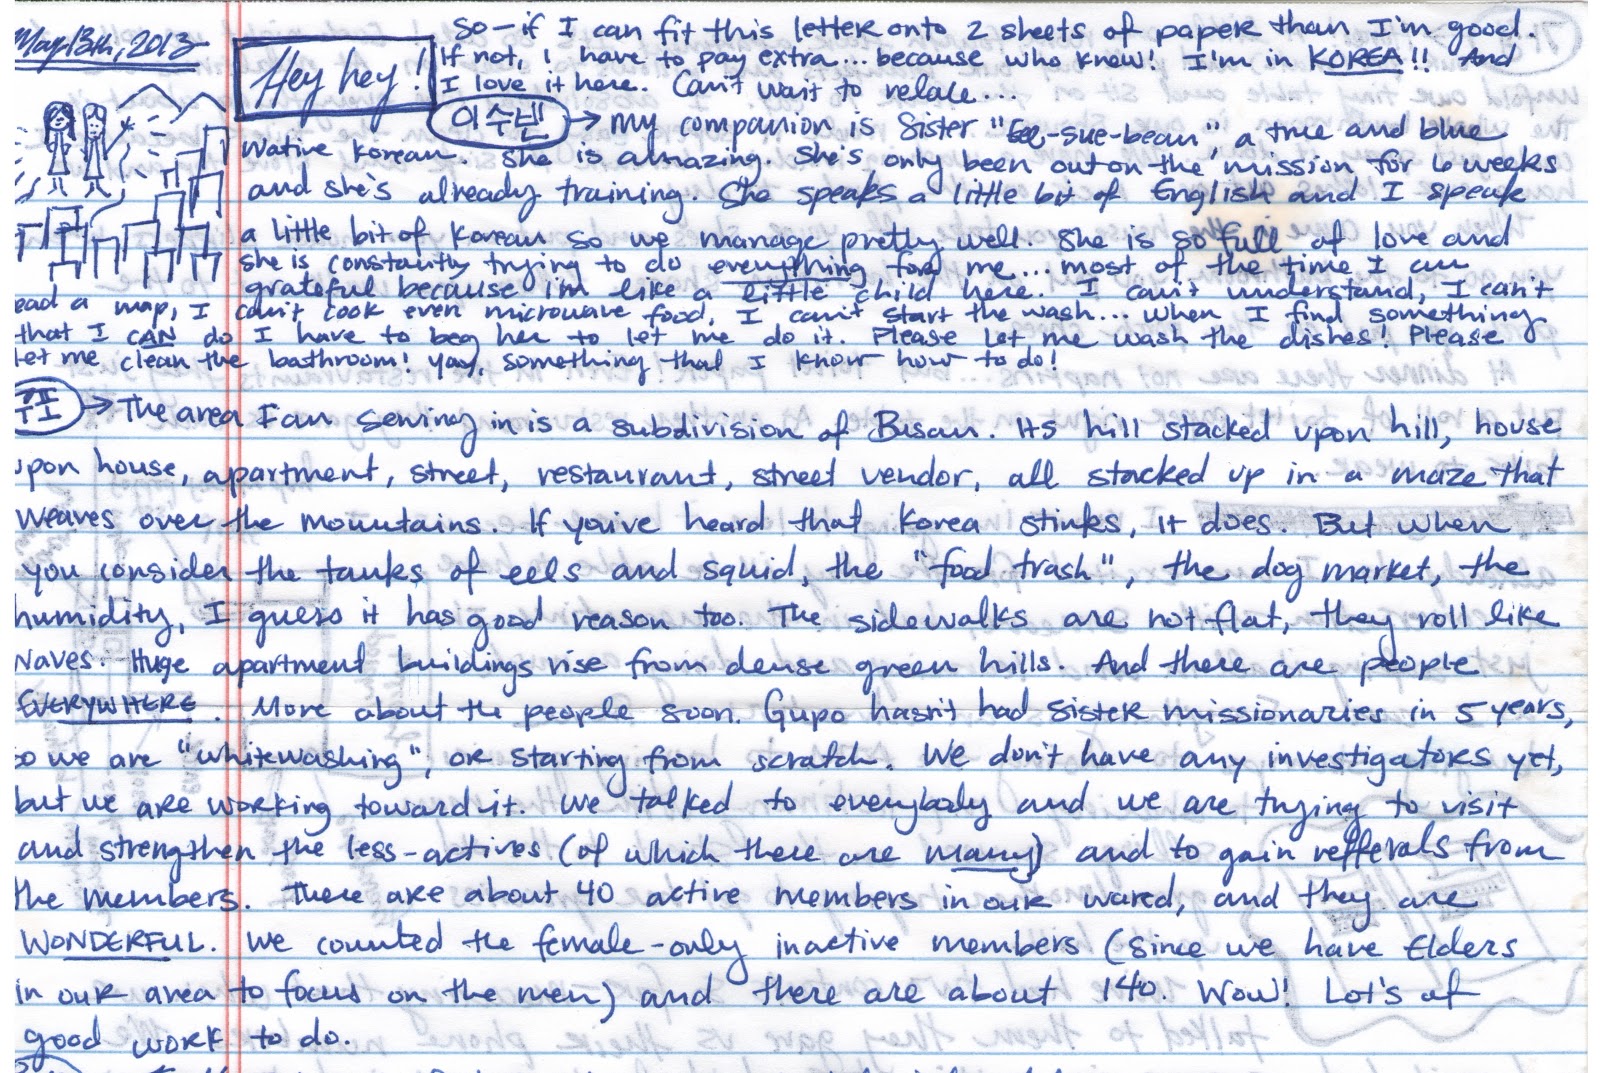 May 13th, 2013
Hey hey!
So - if I can fit this letter onto 2 sheets of paper than I'm good.
If not, I have to pay extra... because who knew! I'm in KOREA!! And
I love it here. Can't wait to relate...
이수빈 → my companion is Sister "Ee-sue-bean", a true and blue
Native Korean. She is amazing. She's only been out on the mission for 6 weeks
and she's already training. She speaks a little bit of English and I speak
a little bit of Korean so we manage pretty well. She is so full of love and
she is constantly trying to do everything for me... most of the time I am
grateful because I'm like a little child here. I can't understand, I can't
ead a map, I can't cook even microwave food, I can't start the wash... When I find something
that I CAN do I have to beg her to let me do it. Please let me wash the dishes! Please
let me clean the bathroom! Yay, something that I know how to do!
구포 → The area I am serving in is a subdivision of Busan. Its hill stacked upon hill, house
upon house, apartment, street, restaurant, street vendor, all stacked up in a maze that
weaves over the mountains. If you've heard that Korea stinks, it does. But when
you consider the tanks of eels and squid, the "food trash", the dog market, the
humidity, I guess it has good reason too. The sidewalks are not flat, they roll like
waves. Huge apartment buildings rise from dense green hills. And there are people
EVERYWHERE. More about the people soon. Gupo hasn't had sister missionaries in 5 years,
so we are "whitewashing", or starting from scratch. We don't have any investigators yet,
but we are working toward it. We talked to everybody and we are trying to visit
and strengthen the less-actives (of which there are many) and to gain refferals from
the members. There are about 40 active members in our wared, and they are
WONDERFUL. We counted the female-only inactive members (since we have Elders
in our area to focus on the men) and there are about 140. Wow! Lot's of
good work to do.